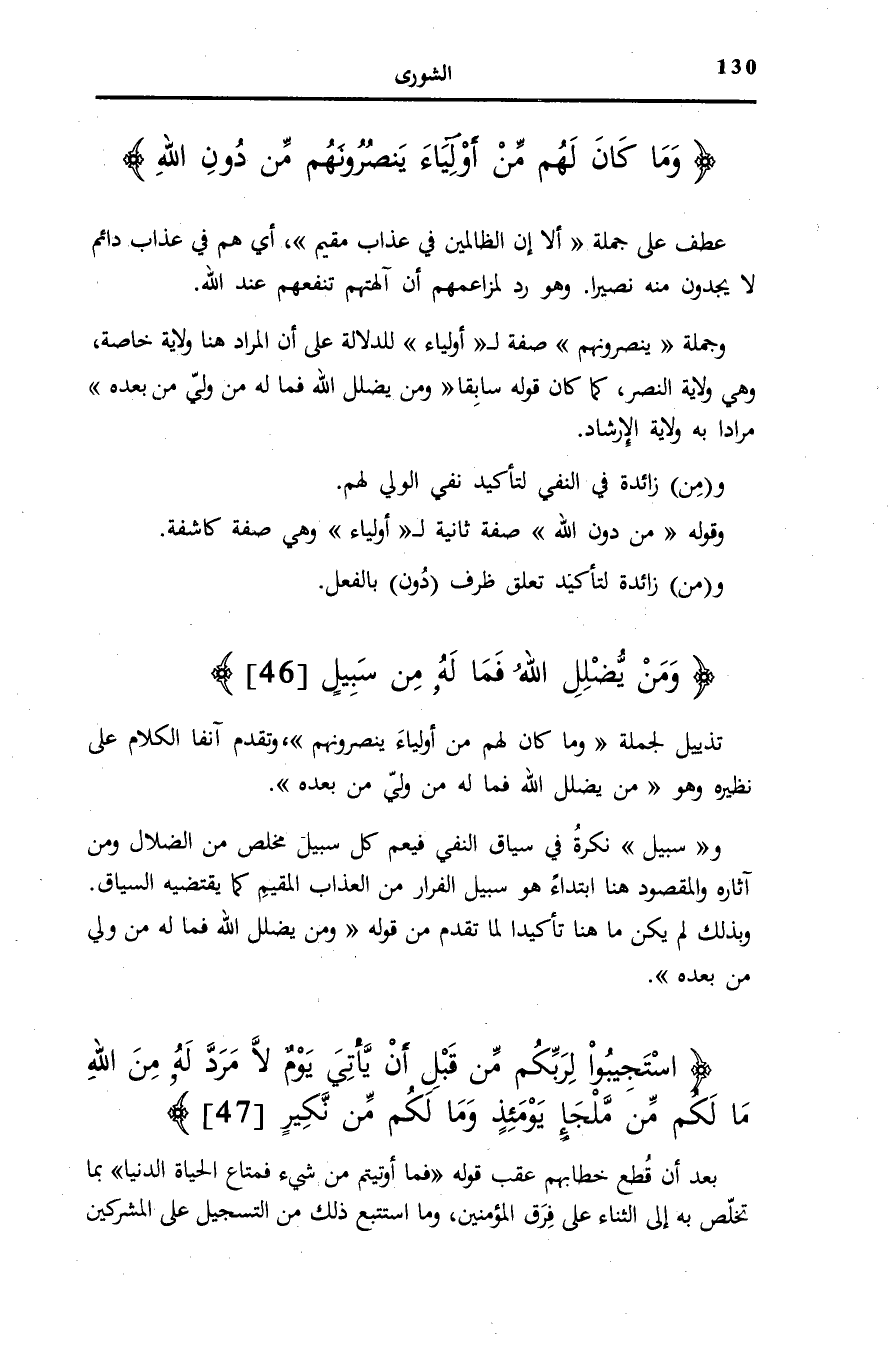 130
الشورى
﴿ وَمَا كَانَ لَهُم مِّنْ أَوْلِيَآءَ يَنصُرُونَهُم مِّن دُونِ اللهِ ﴾
عطف على جملة « ألا إن الظالمين في عذاب مقيم »، أي هم في عذاب دائم
لا يجدون منه نصيرا. وهو رد لمزاعمهم أن آلهتهم تنفعهم عند الله.
وجملة « ينصرونهم » صفة لـ« أولياء » للدلالة على أن المراد هنا ولاية خاصة،
وهي ولاية النصر، كما كان قوله سابقا« ومن يضلل الله فما له من وليّ من بعده »
مرادا به ولاية الإرشاد.
و(مِن) زائدة في النفي لتأكيد نفي الولي لهم.
وقوله « من دون الله » صفة ثانية لـ« أولياء » وهي صفة كاشفة.
و(من) زائدة لتأكيد تعلق ظرف (دُون) بالفعل.
﴿ وَمَنْ يُّضْلِلِ اللهُ فَمَا لَهُۥ مِن سَبِيلٍ [46] ﴾
تذييل لجملة « وما كان لهم من أولياءَ ينصرونهم »،وتقدم آنفا الكلام على
نظيره وهو « من يضلل الله فما له من وليّ من بعده ».
و« سبيل » نكرةُ في سياق النفي فيعم كل سبيل مخلص من الضلال ومن
آثاره والمقصود هنا ابتداءً هو سبيل الفرار من العذاب المقيمِ كما يقتضيه السياق.
وبذلك لم يكن ما هنا تأكيدا لما تقدم من قوله « ومن يضلل الله فما له من ولي
من بعده ».
﴿ اسْتَجِيبُواْ لِرَبِّكُم مِّن قَبْلِ أَنْ يَّأْتِيَ يَوْمٌ لاَّ مَرَدَّ لَهُۥ مِنَ اللهِ
مَا لَكُم مِّن مَّلْجَإٍ يَوْمَئِذٍ وَمَا لَكُم مِّن نَّكِيرٍ [47] ﴾
بعد أن قُطع خطابهم عقب قوله «فما أوتيتم من شيء فمتاع الحياة الدنيا» بما
تخلّص به إلى الثناء على فِرَق المؤمنين، وما استتبع ذلك من التسجيل على المشركين